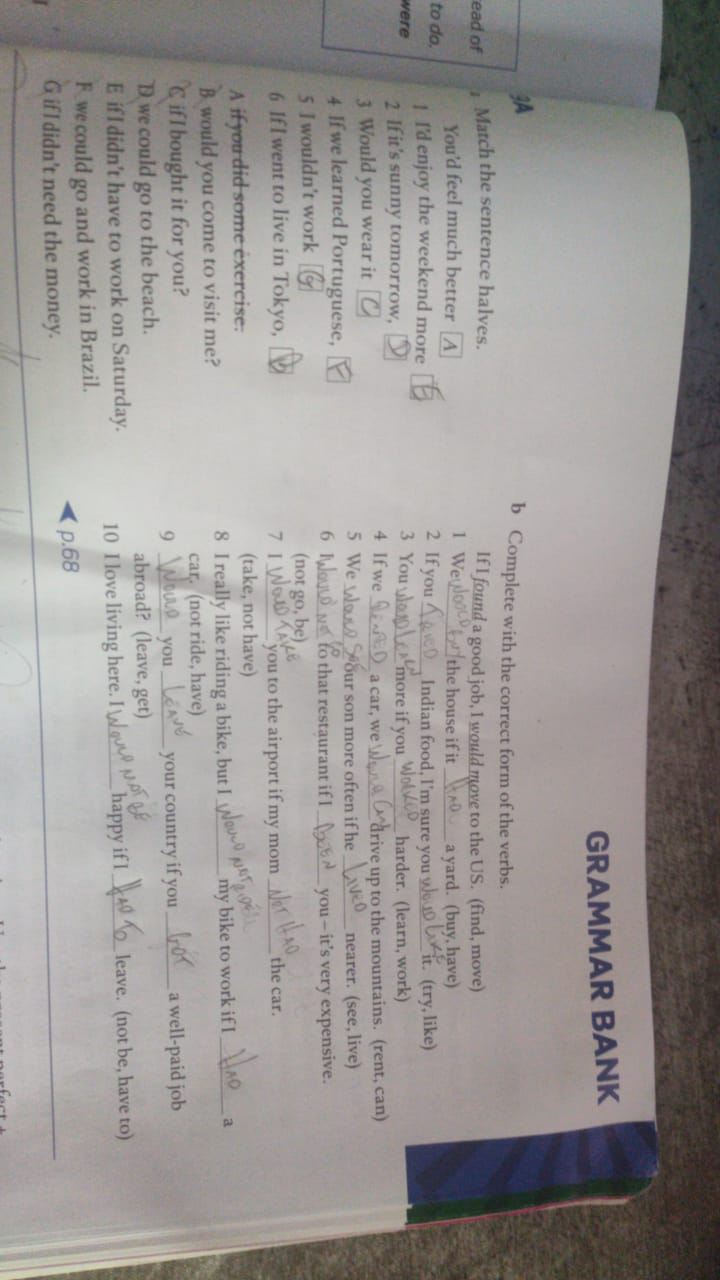 GRAMMAR BANK
ead of
to do.
were
9A
a Match the sentence halves.
You'd feel much better A
1 I'd enjoy the weekend more E
2 If it's sunny tomorrow, D
3 Would you wear it C
4 If we learned Portuguese, F
5 I wouldn't work G
6 If I went to live in Tokyo, B
A if you did some exercise.
B would you come to visit me?
C if I bought it for you?
D we could go to the beach.
E if I didn't have to work on Saturday.
F we could go and work in Brazil.
G if I didn't need the money.
b Complete with the correct form of the verbs.
If I found a good job, I would move to the US. (find, move)
1 We would buy the house if it HAD a yard. (buy, have)
2 If you TRIED Indian food, I'm sure you would LIKE it. (try, like)
3 You would LEARN more if you WORKED harder. (learn, work)
4 If we RENTED a car, we drive up to the mountains. (rent, can)
5 We WOULD SEE our son more often if he LIVED nearer. (see, live)
6 I WOULD NOT GO to that restaurant if I you – it's very expensive.
(not go, be)
7 I WOULD TAKE you to the airport if my mom NOT HAD the car.
(take, not have)
8 I really like riding a bike, but I WOULD NOT my bike to work if I HAD a
car. (not ride, have)
9 WOULD you LEAVE your country if you GOT a well-paid job
abroad? (leave, get)
10 I love living here. I WOULD NOT BE happy if I HAD TO leave. (not be, have to)
p.68